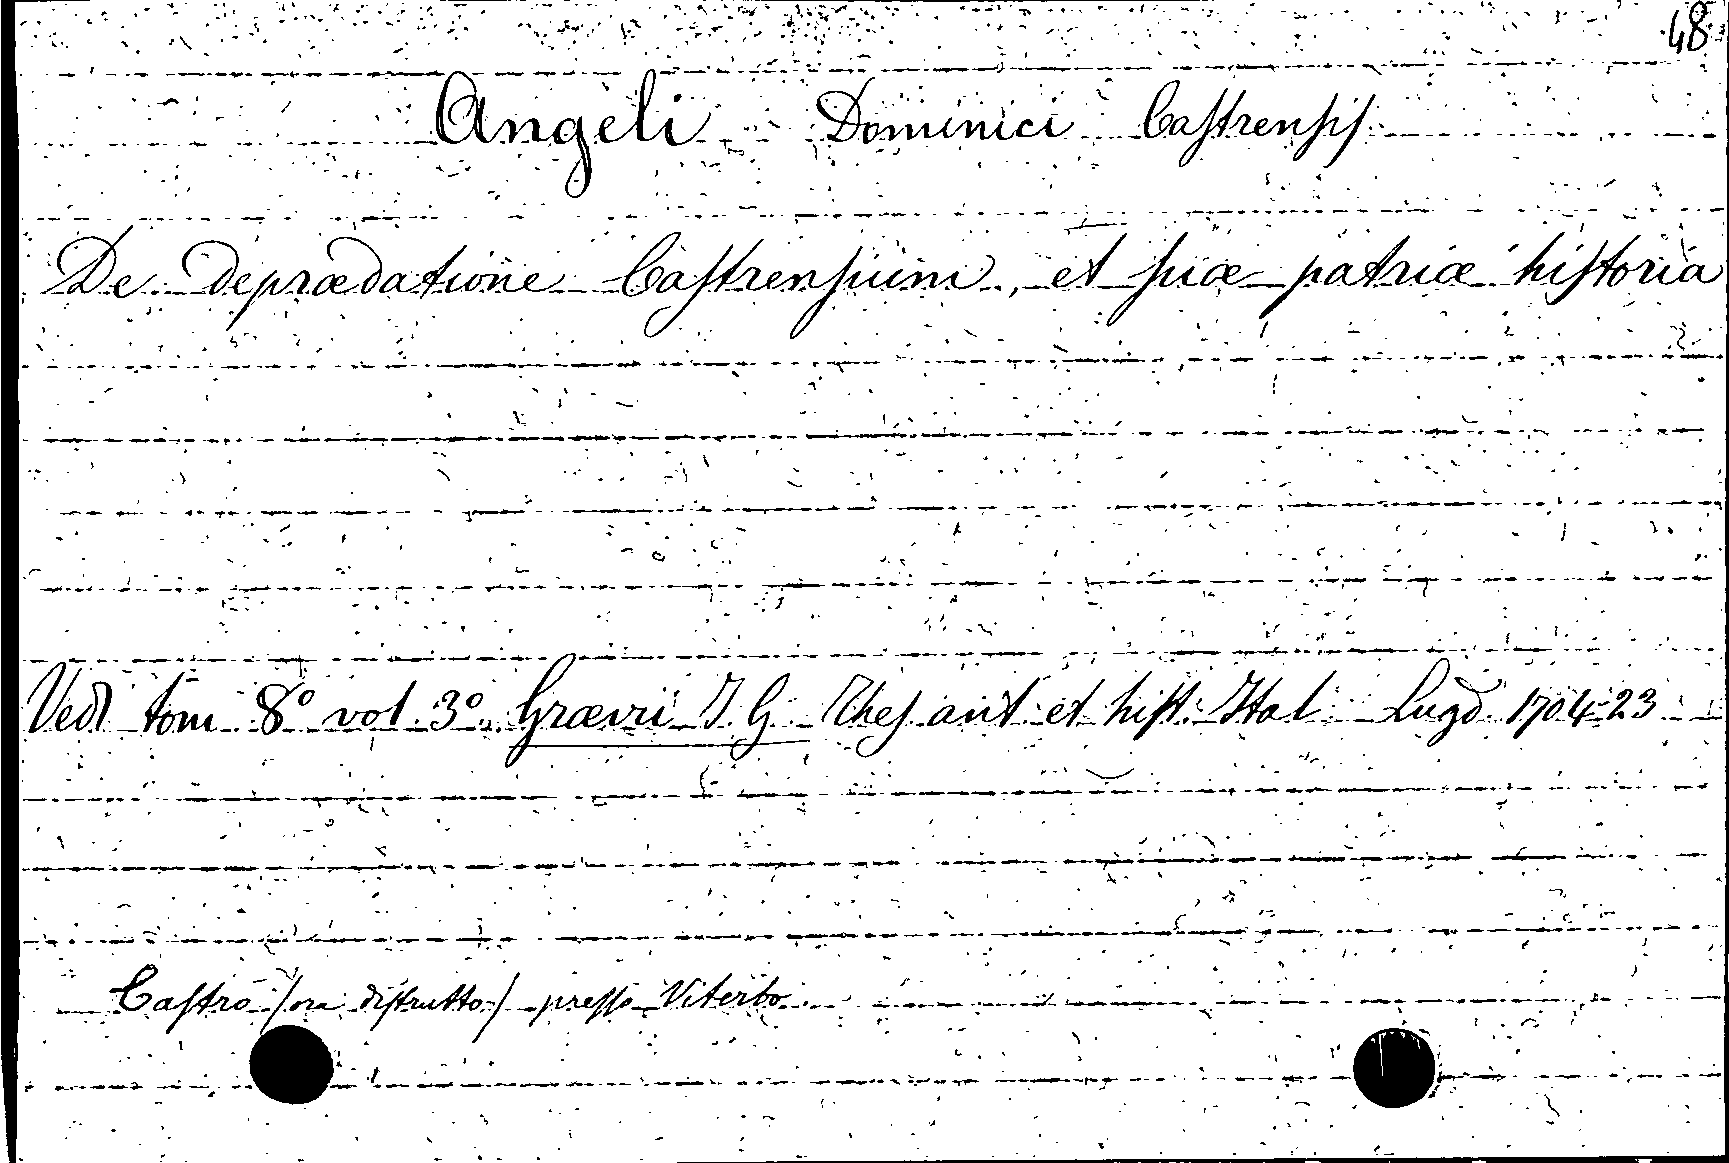 48
Angeli Dominici Castrensis
De deprædatione Castrensium, et suæ patriæ historia
Vedi tom 8º vol. 3º Grævii I. G. Thes ant. et hist. Ital. Lugd. 1704-23
Castro /ora distrutto/ presso Viterbo